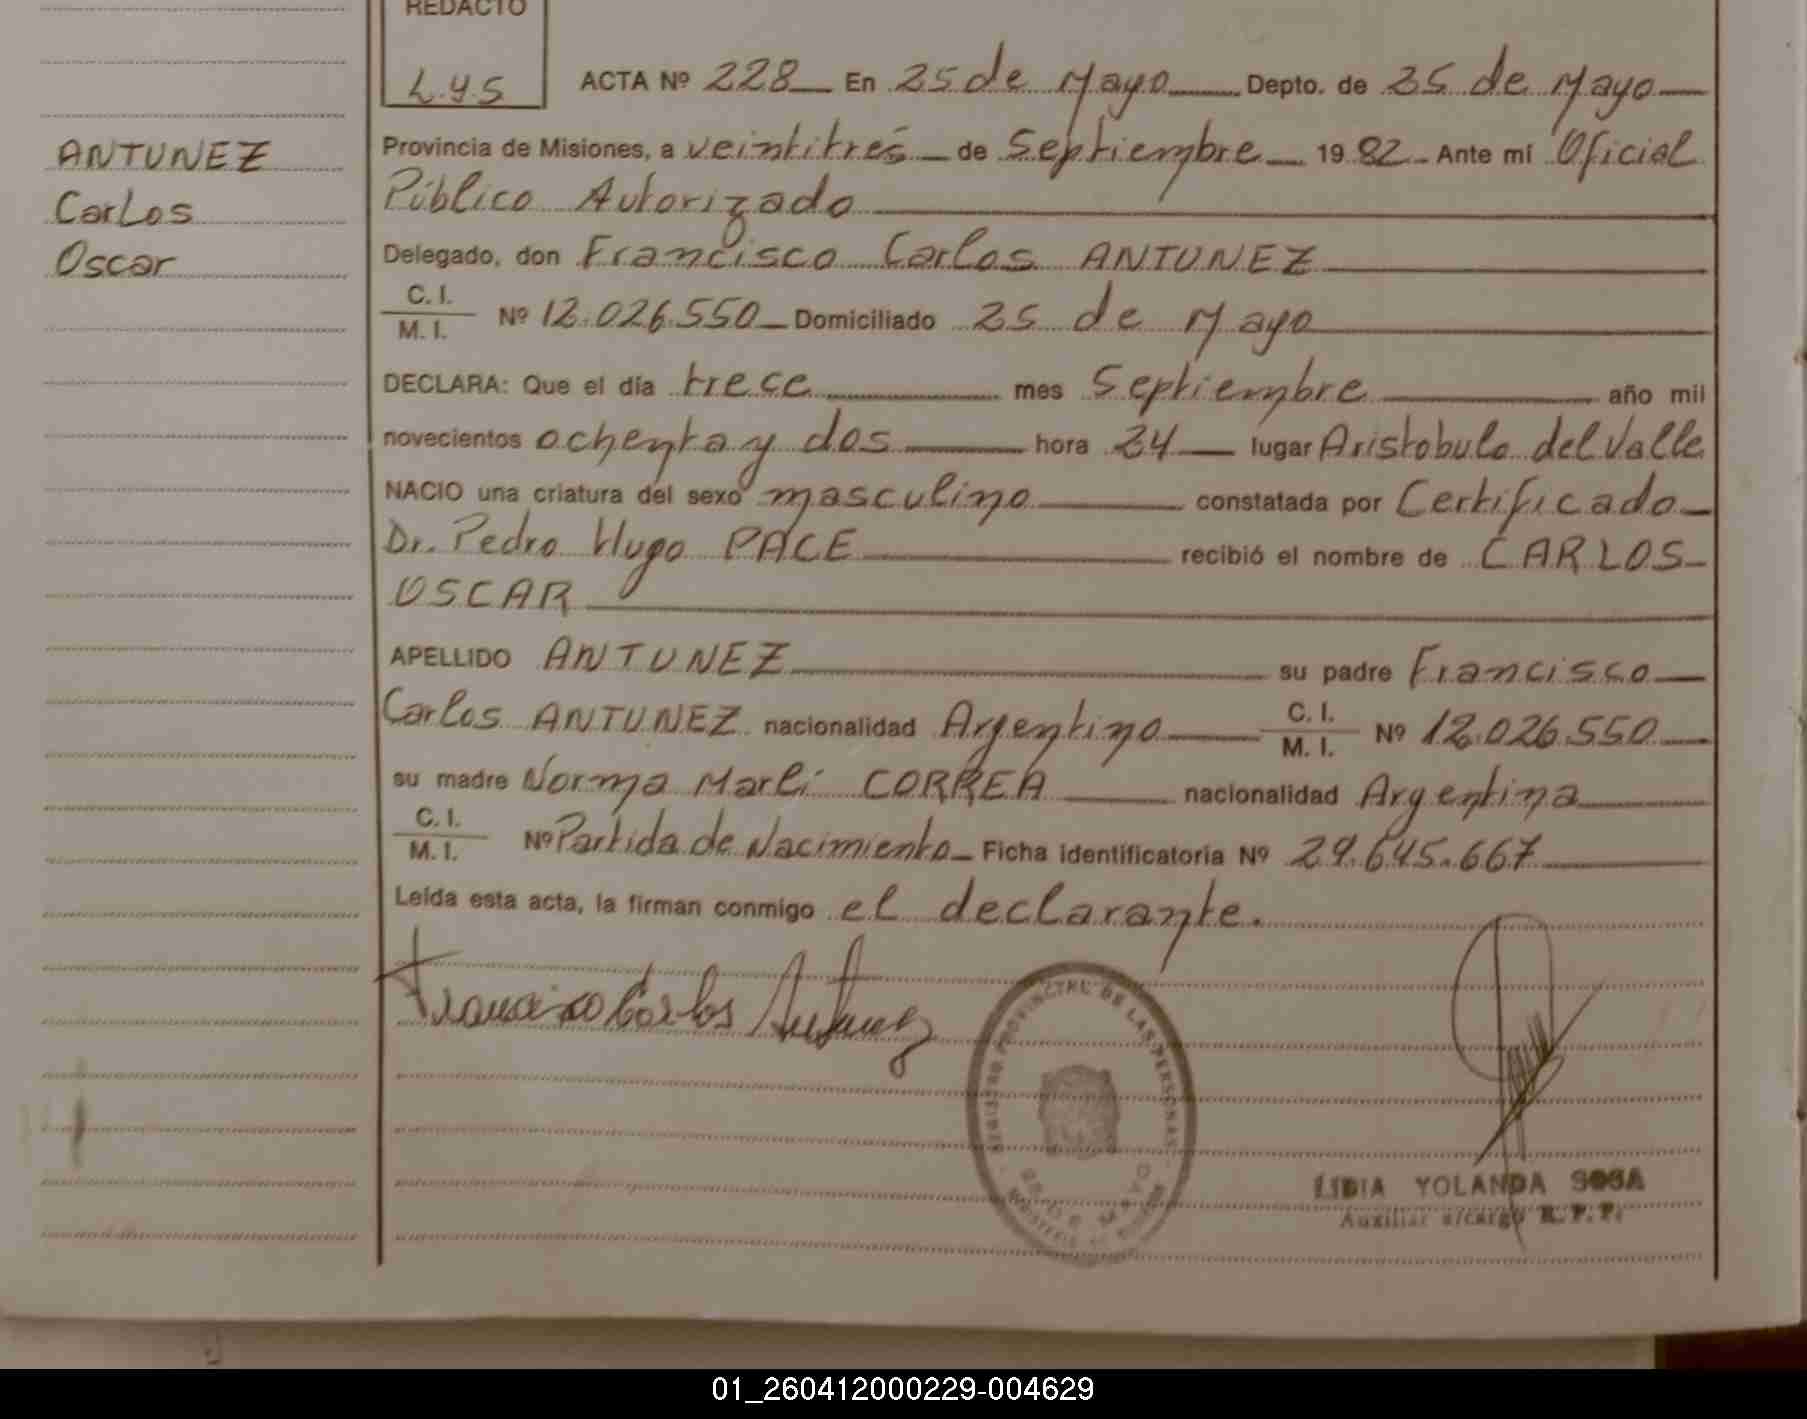 REDACTO
L.Y.S
ACTA Nº 228 En 25 de Mayo Depto. de 25 de Mayo
ANTUNEZ
Carlos
Oscar
Provincia de Misiones, a veintitres de Septiembre 1982 Ante mí Oficial
Público Autorizado
Delegado, don Francisco Carlos ANTUNEZ
C. I.
M. I. Nº 12.026.550 Domiciliado 25 de Mayo
DECLARA: Que el día trece mes Septiembre año mil
novecientos ochenta y dos hora 24 lugar Aristobulo del Valle
NACIO una criatura del sexo masculino constatada por Certificado
Dr. Pedro Hugo PACE recibió el nombre de CARLOS
OSCAR
APELLIDO ANTUNEZ su padre Francisco
Carlos ANTUNEZ nacionalidad Argentino C. I. M. I. Nº 12.026.550
su madre Norma Marli CORREA nacionalidad Argentina
C. I.
M. I. Nº Partida de Nacimiento Ficha identificatoria Nº 29.645.667
Leída esta acta, la firman conmigo el declarante.
Francisco Carlos Antunez
REGISTRO PROVINCIAL DE LAS PERSONAS
25 DE MAYO
LIDIA YOLANDA SOSA
Auxiliar a/cargo R. P. P.
01_260412000229-004629